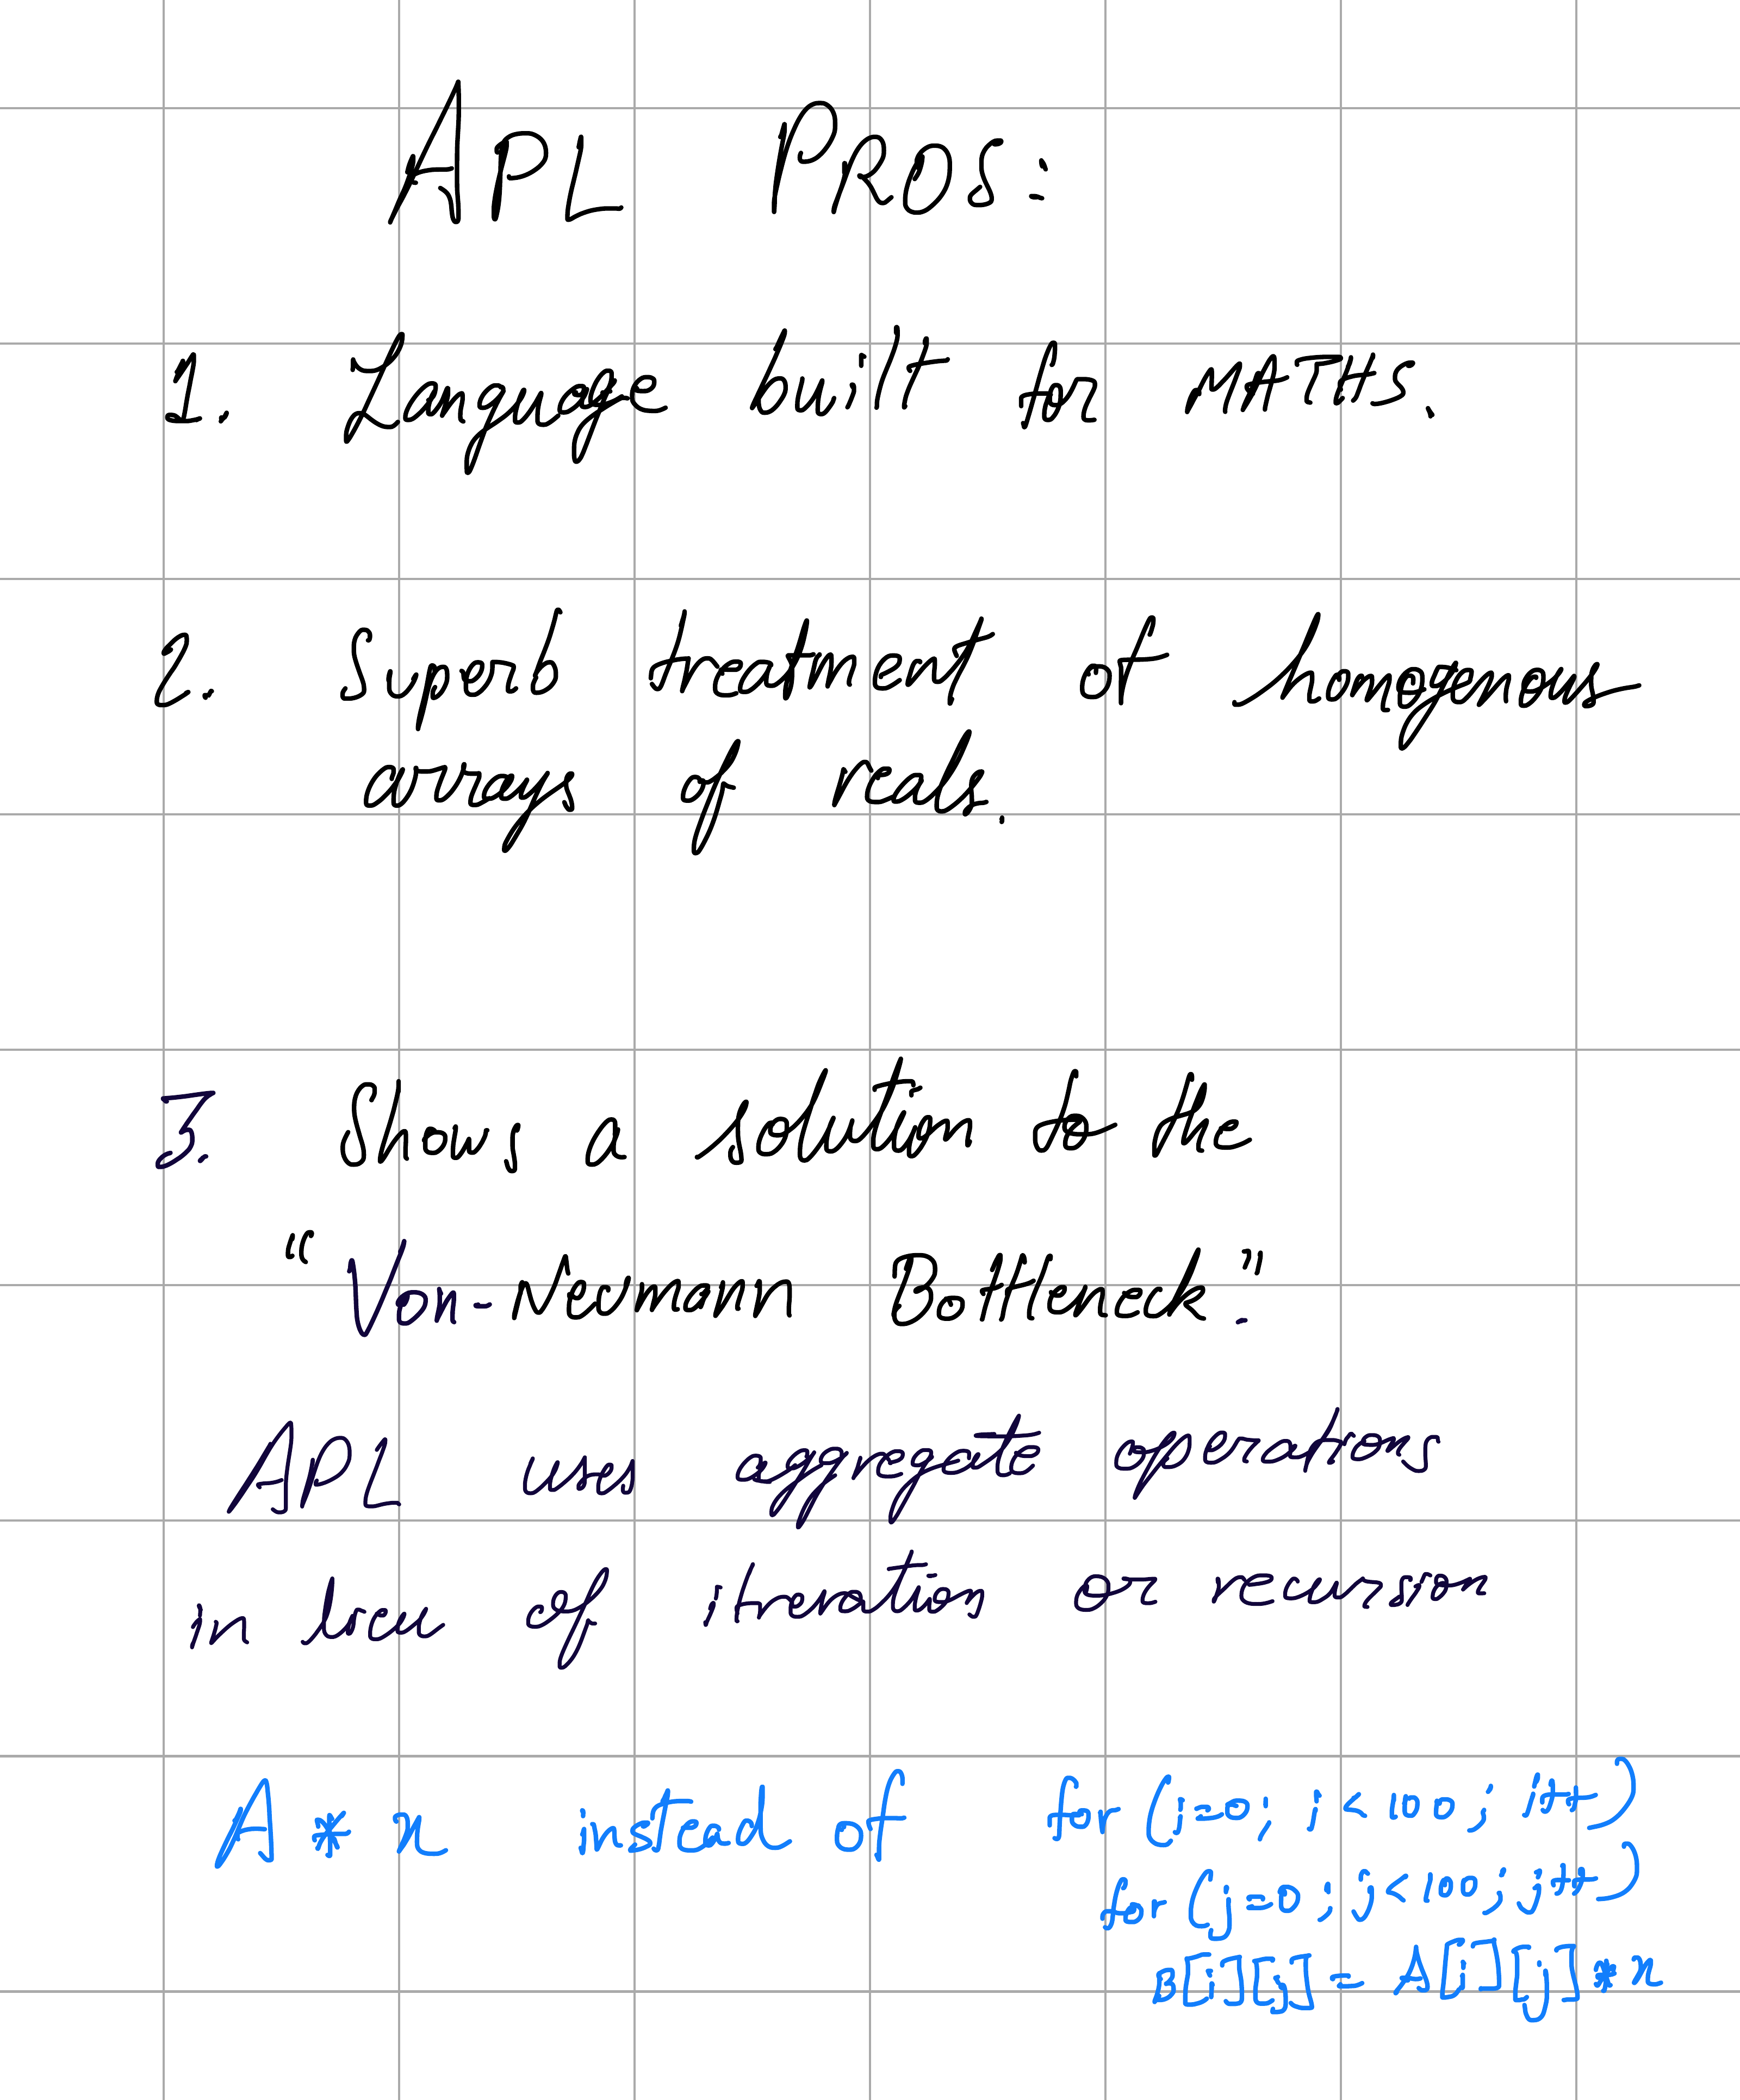 APL PROS:
1. Language built for MATHS.
2. Superb treatment of homogenous
arrays of reals.
3. Shows a solution to the
"Von-Neumann Bottleneck".
APL uses aggregate operations
in lieu of iteration or recursion
A * x instead of for(i=0; i<100; i++)
for(j=0; j<100; j++)
B[i][j] = A[i][j] * x